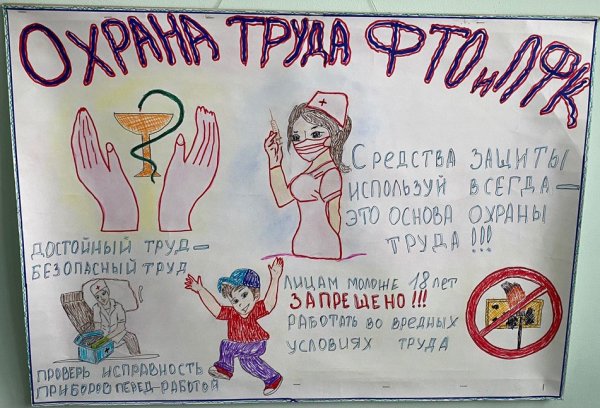 ОХРАНА ТРУДА ФТО и ЛФК
СРЕДСТВА ЗАЩИТЫ
ИСПОЛЬЗУЙ ВСЕГДА –
ЭТО ОСНОВА ОХРАНЫ
ТРУДА !!!
ДОСТОЙНЫЙ ТРУД –
БЕЗОПАСНЫЙ ТРУД
ЛИЦАМ МОЛОЖЕ 18 ЛЕТ
ЗАПРЕЩЕНО!!!
РАБОТАТЬ ВО ВРЕДНЫХ
УСЛОВИЯХ ТРУДА
ПРОВЕРЬ ИСПРАВНОСТЬ
ПРИБОРОВ ПЕРЕД РАБОТОЙ